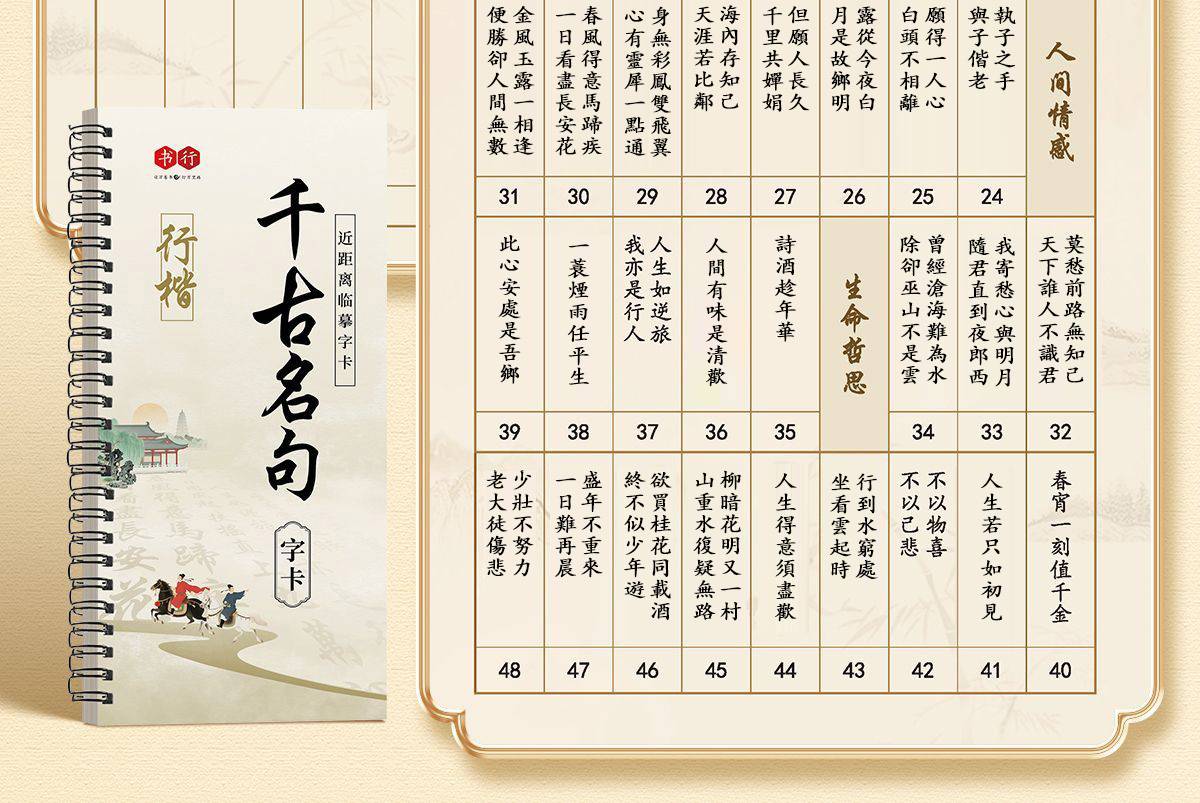 书行
千古名句
近距离临摹字卡
行楷
字卡
人间情感
執子之手
與子偕老
24
願得一人心
白頭不相離
25
露從今夜白
月是故鄉明
26
但願人長久
千里共嬋娟
27
海內存知己
天涯若比鄰
28
身無彩鳳雙飛翼
心有靈犀一點通
29
春風得意馬蹄疾
一日看盡長安花
30
金風玉露一相逢
便勝卻人間無數
31
莫愁前路無知己
天下誰人不識君
32
我寄愁心與明月
隨君直到夜郎西
33
曾經滄海難為水
除卻巫山不是雲
34
生命哲思
詩酒趁年華
35
人間有味是清歡
36
人生如逆旅
我亦是行人
37
一蓑煙雨任平生
38
此心安處是吾鄉
39
春宵一刻值千金
40
人生若只如初見
41
不以物喜
不以己悲
42
行到水窮處
坐看雲起時
43
人生得意須盡歡
44
柳暗花明又一村
山重水復疑無路
45
欲買桂花同載酒
終不似少年遊
46
盛年不重來
一日難再晨
47
少壯不努力
老大徒傷悲
48